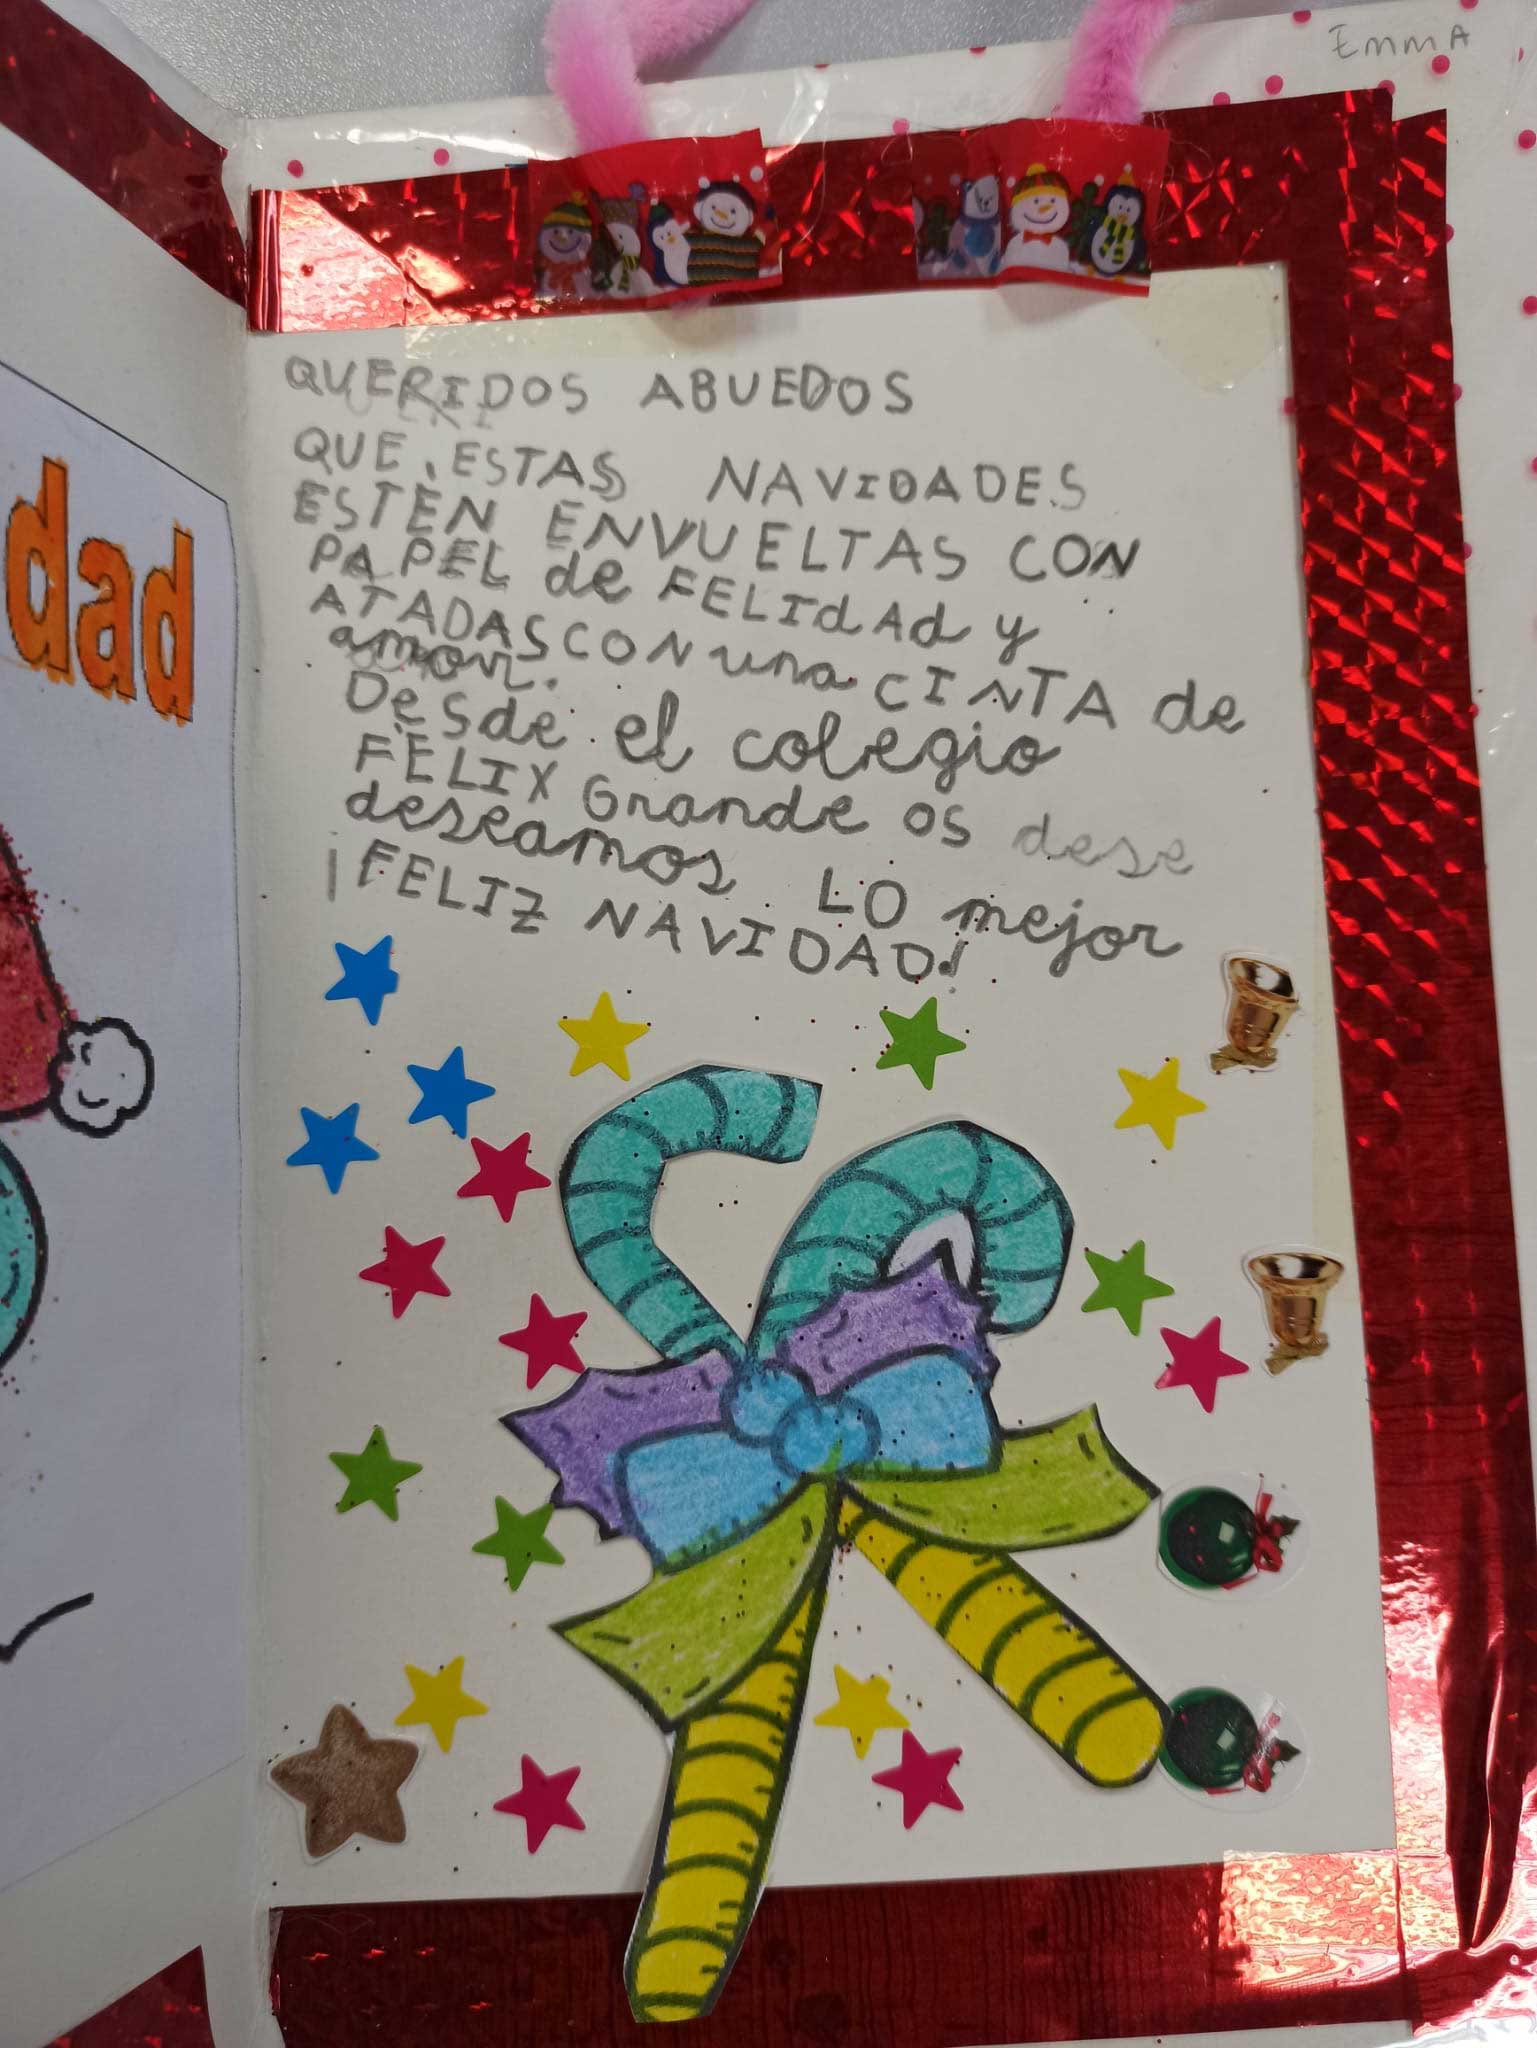 EmmA
QUERIDOS ABUEDOS
QUE ESTAS NAVIDADES
ESTÉN ENVUELTAS CON
PAPEL de FELIdAd y
ATADAS CON una CINTA de
amor.
Desde el colegio
FÉLIX Grande os dese
deseamos LO mejor
¡FELIZ NAVIDAD!
dad